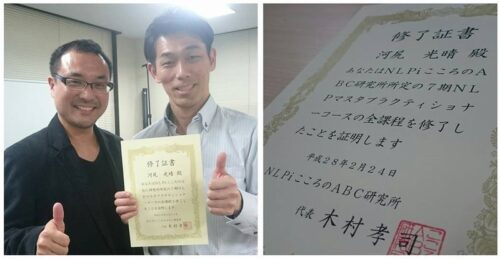 修了証書
河尻 光晴 殿
修了証書
河尻 光晴 殿
あなたはNLPiこころのA
BC研究所所定の7期NL
Pマスタプラクティショナ
ーコースの全課程を修了し
たことを証明します
平成28年2月24日
NLPiこころのABC研究所
代表 木村孝司